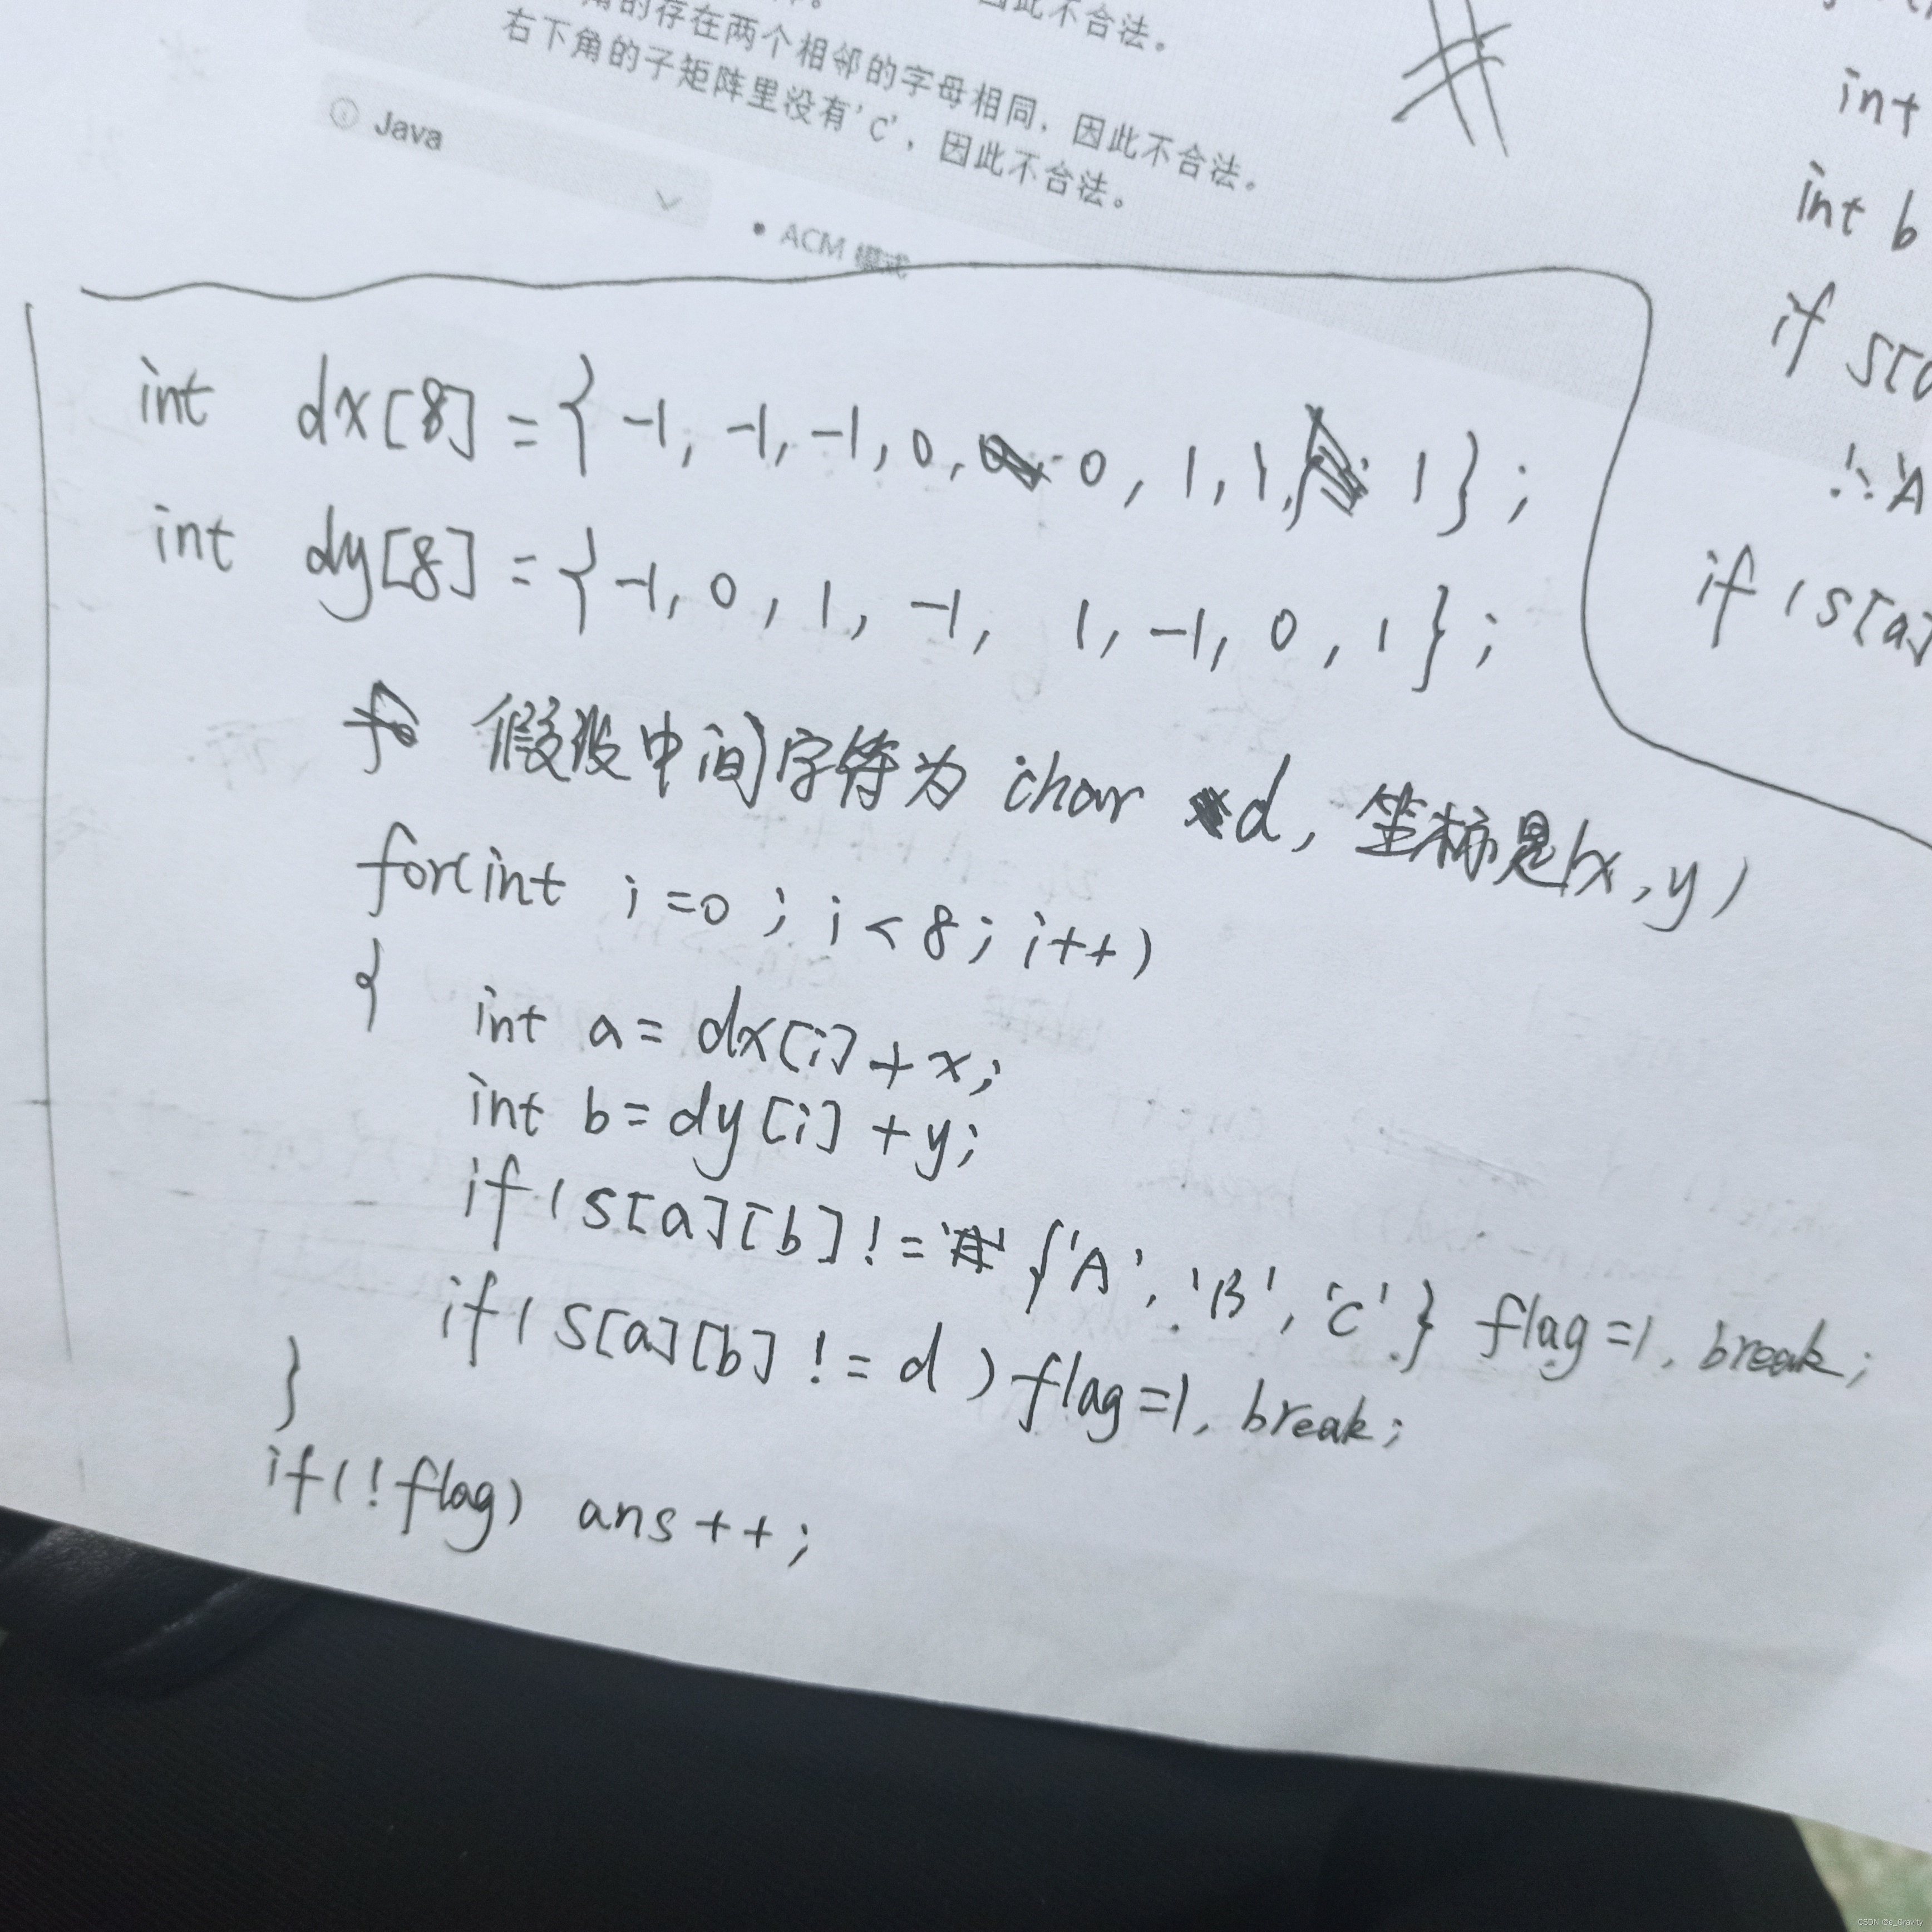 因此不合法。
角的存在两个相邻的字母相同，因此不合法。
右下角的子矩阵里没有'C'，因此不合法。
Java
• ACM 模式
int dx[8] = { -1, -1, -1, 0, 0, 1, 1, 1 };
int dy[8] = { -1, 0, 1, -1, 1, -1, 0, 1 };
假设中间字符为 char d, 坐标是(x, y)
for(int i=0; i<8; i++)
{
int a= dx[i]+x;
int b= dy[i]+y;
if ( s[a][b] != {'A', 'B', 'C'} flag=1, break;
if ( s[a][b] != d ) flag=1, break;
}
if(!flag) ans++;
int
int b
if s[a
!= 'A
if ( s[a]
CSDN @e_Gravity